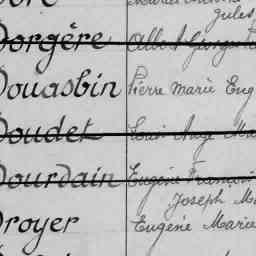 Jules
Dorgère Albert Georges
Douasbin Pierre Marie Eug
Doudet Louis Ange Ma
Dourdain Eugène François
Joseph Ma
Droyer Eugène Marie